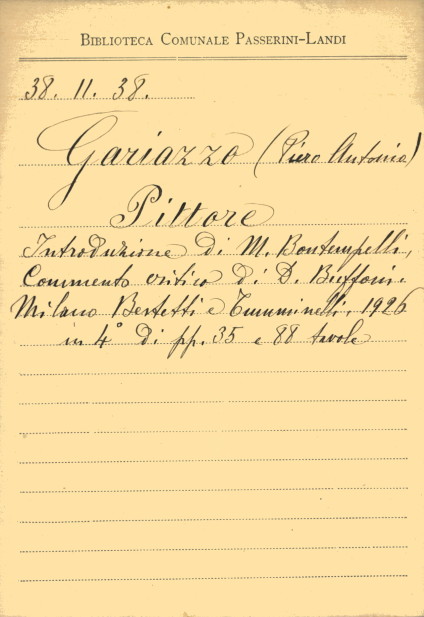 BIBLIOTECA COMUNALE PASSERINI-LANDI
38. 11. 38.
Gariazzo (Piero Antonio)
Pittore
Introduzione di M. Bontempelli,
Commento critico di D. Buffoni.
Milano Bestetti e Tumminelli, 1926
in 4° di pp. 35 e 88 tavole